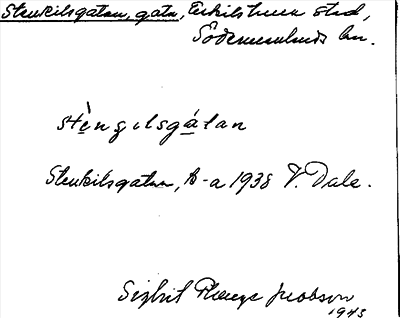 Stenkilsgatan, gata, Eskilstuna stad,
Södermanlands län.
stèngilsgátan
Stenkilsgatan, A-a 1938 V. Dale.
Sigbrit Plænge Jacobson
1943